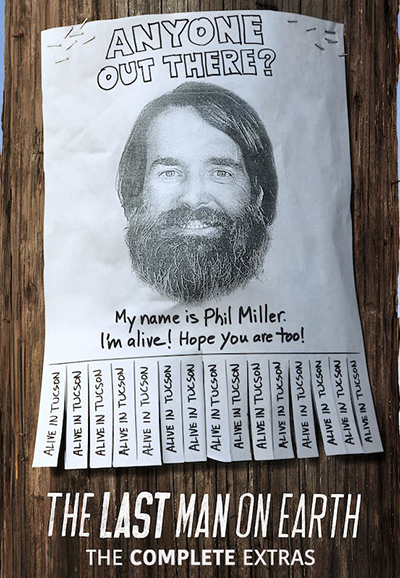 ANYONE
OUT THERE?
My name is Phil Miller.
I'm alive! Hope you are too!
ALIVE IN TUCSON
ALIVE IN TUCSON
ALIVE IN TUCSON
ALIVE IN TUCSON
ALIVE IN TUCSON
ALIVE IN TUCSON
ALIVE IN TUCSON
ALIVE IN TUCSON
ALIVE IN TUCSON
ALIVE IN TUCSON
ALIVE IN TUCSON
ALIVE IN TUCSON
ALIVE IN TUCSON
ALIVE IN TUCSON
ALIVE IN TUCSON
THE LAST MAN ON EARTH
THE COMPLETE EXTRAS